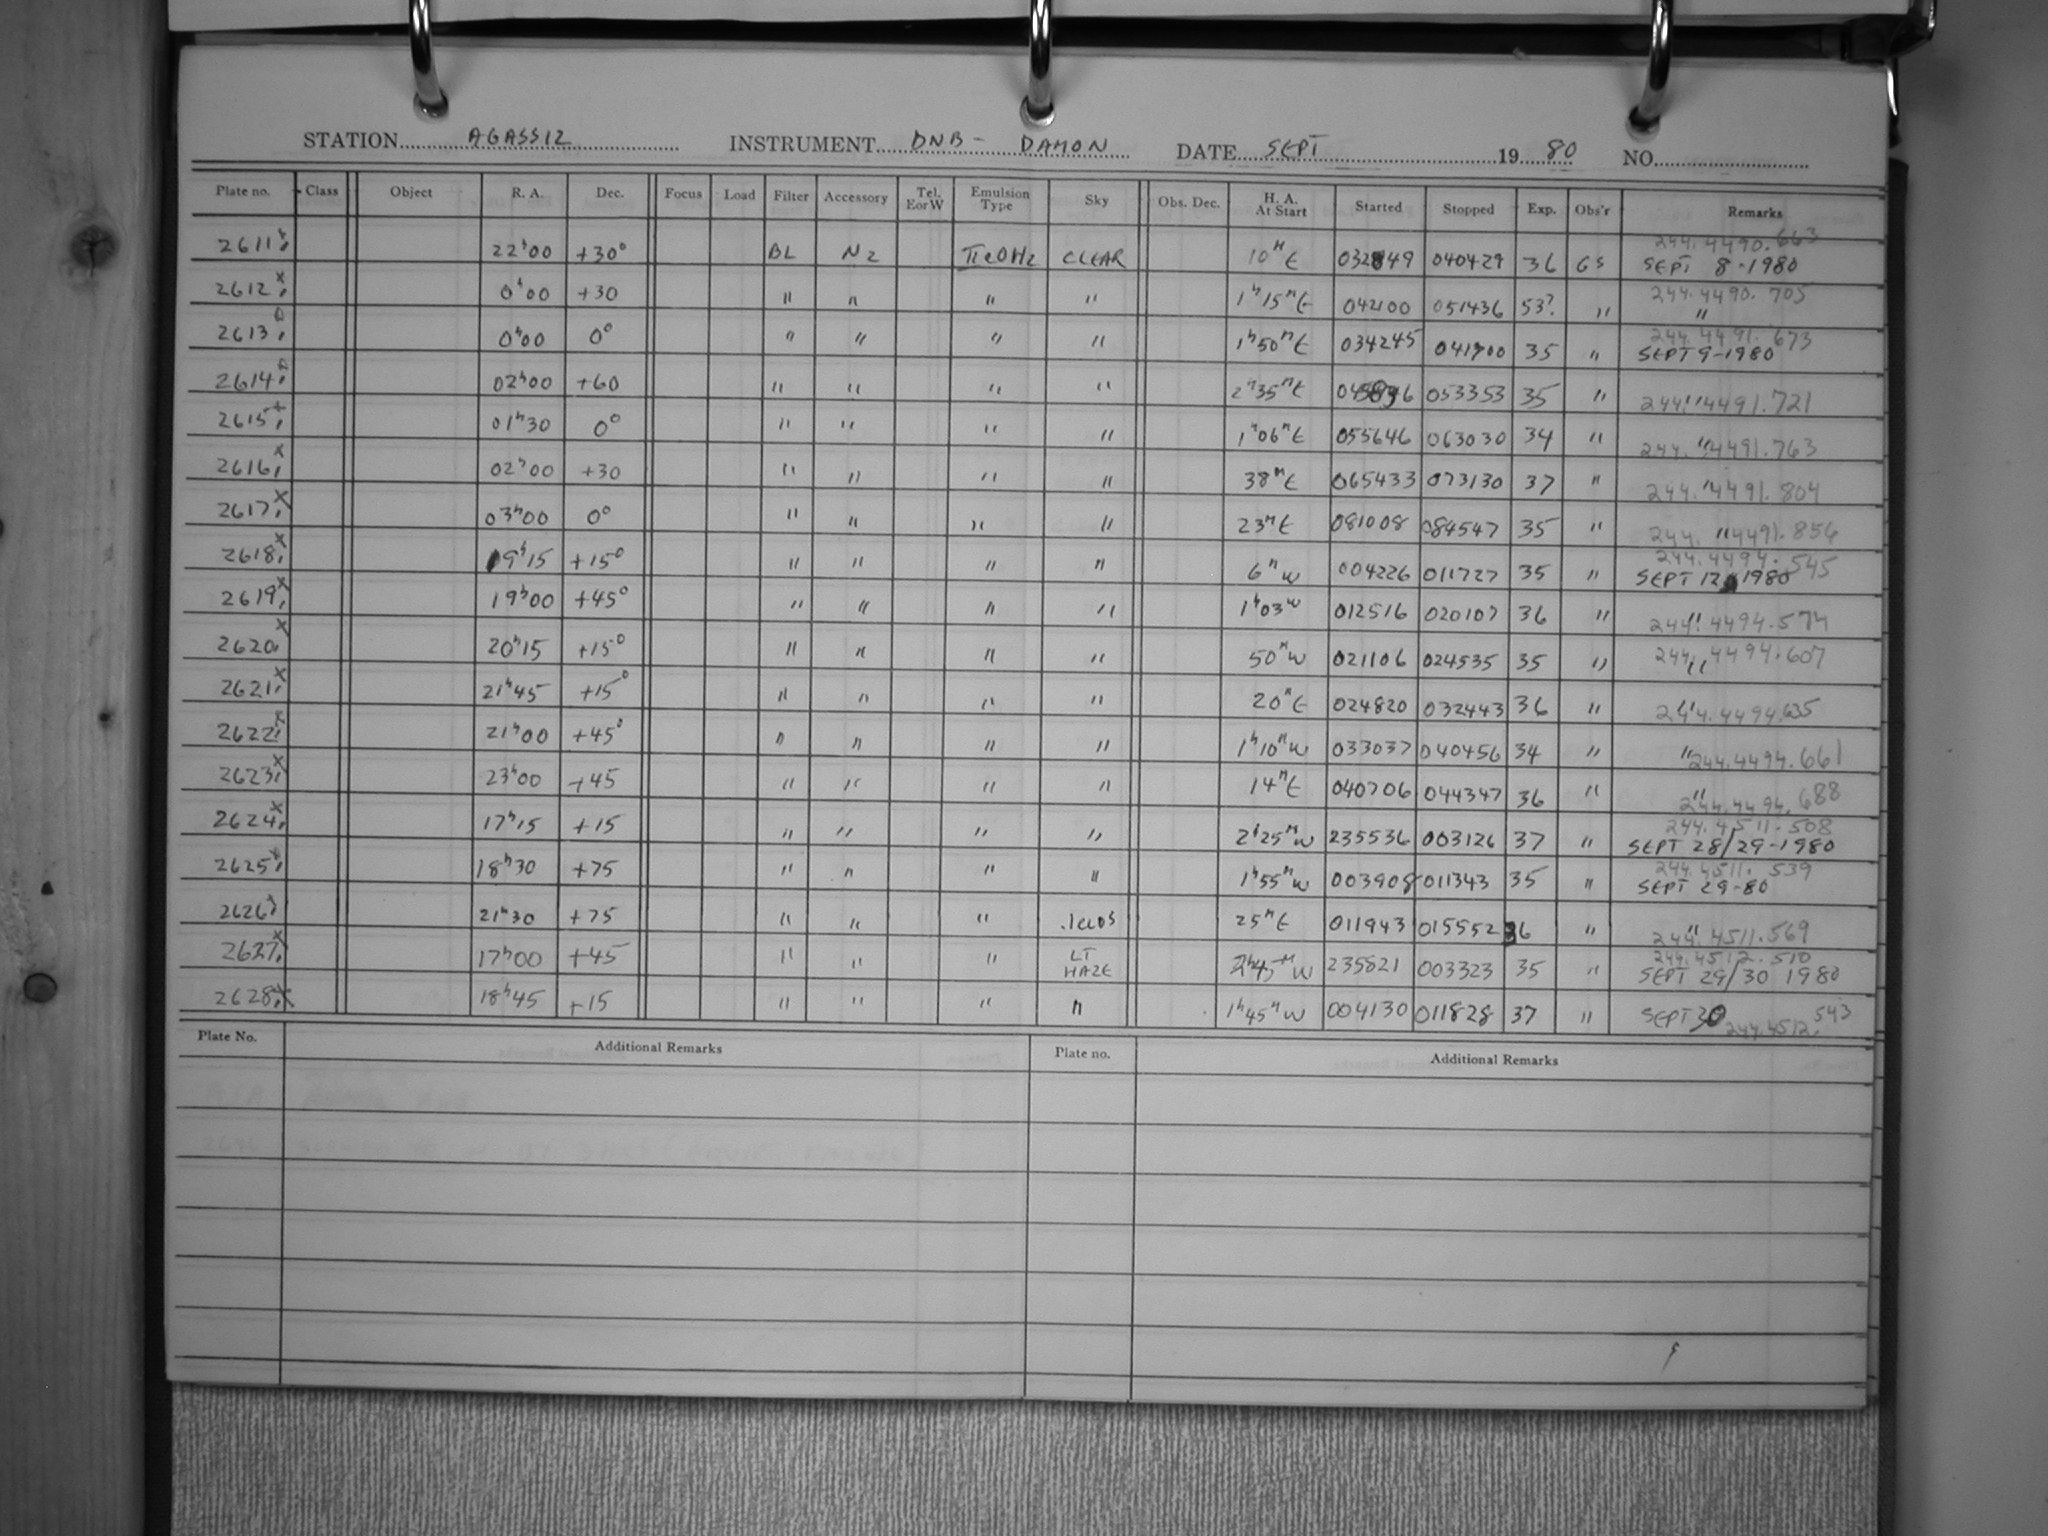 STATION AGASSIZ INSTRUMENT DNB - DAMON DATE SEPT 19 80 NO.
Plate no. Class Object R. A. Dec. Focus Load Filter Accessory Tel. E or W Emulsion Type Sky Obs. Dec. H. A. At Start Started Stopped Exp. Obs'r Remarks
244.4490.663
2611 22h00 +30° BL N2 CLEAR 10M E 040429 36 GS SEPT 8-1980
2612 x 0h00 +30 " " " " 1h15M E 042100 051436 53? " 244.4490.705 "
2613 0h00 0° " " " " 1h50M E 034245 041900 35 " 244.4491.673 SEPT 9-1980
2614 02h00 +60 " " " " 2h35M E 053353 35 " " 244.4491.721
2615 01h30 0° " " " " 1h06M E 055646 063030 34 " " 244.4491.763
2616 x 02h00 +30 " " " " 38M E 065433 073130 37 " " 244.4491.804
2617 x 03h00 0° " " " " 23M E 081008 084547 35 " " 244.4491.856
2618 x 19h15 +15° " " " " 6M W 004226 011727 35 " 244.4494.545 SEPT 12 1980
2619 x 19h00 +45° " " " " 1h03 W 012516 020107 36 " " 244.4494.574
2620 x 20h15 +15° " " " " 50M W 021106 024535 35 " 244.4494.607 "
2621 x 21h45 +15° " " " " 20M E 024820 032443 36 " " 244.4494.635
2622 21h00 +45° " " " " 1h10M W 033037 040456 34 " " 244.4494.661
2623 x 23h00 +45 " " " " 14M E 040706 044347 36 " " 244.4494.688
2624 x 17h15 +15 " " " " 2h25M W 235536 003126 37 " 244.4511.508 SEPT 28/29-1980
2625 18h30 +75 " " " " 1h55M W 003908 011343 35 " 244.4511.539 SEPT 29-80
2626 21h30 +75 " " " 25M E 011943 015552 36 " " 244.4511.569
2627 x 17h00 +45 " " " LT HAZE 2h45M W 235821 003323 35 " 244.4512.510 SEPT 29/30 1980
2628 x 18h45 +15 " " " " 1h45M W 004130 011828 37 " SEPT 30 244.4512.543
Plate No. Additional Remarks Plate no. Additional Remarks